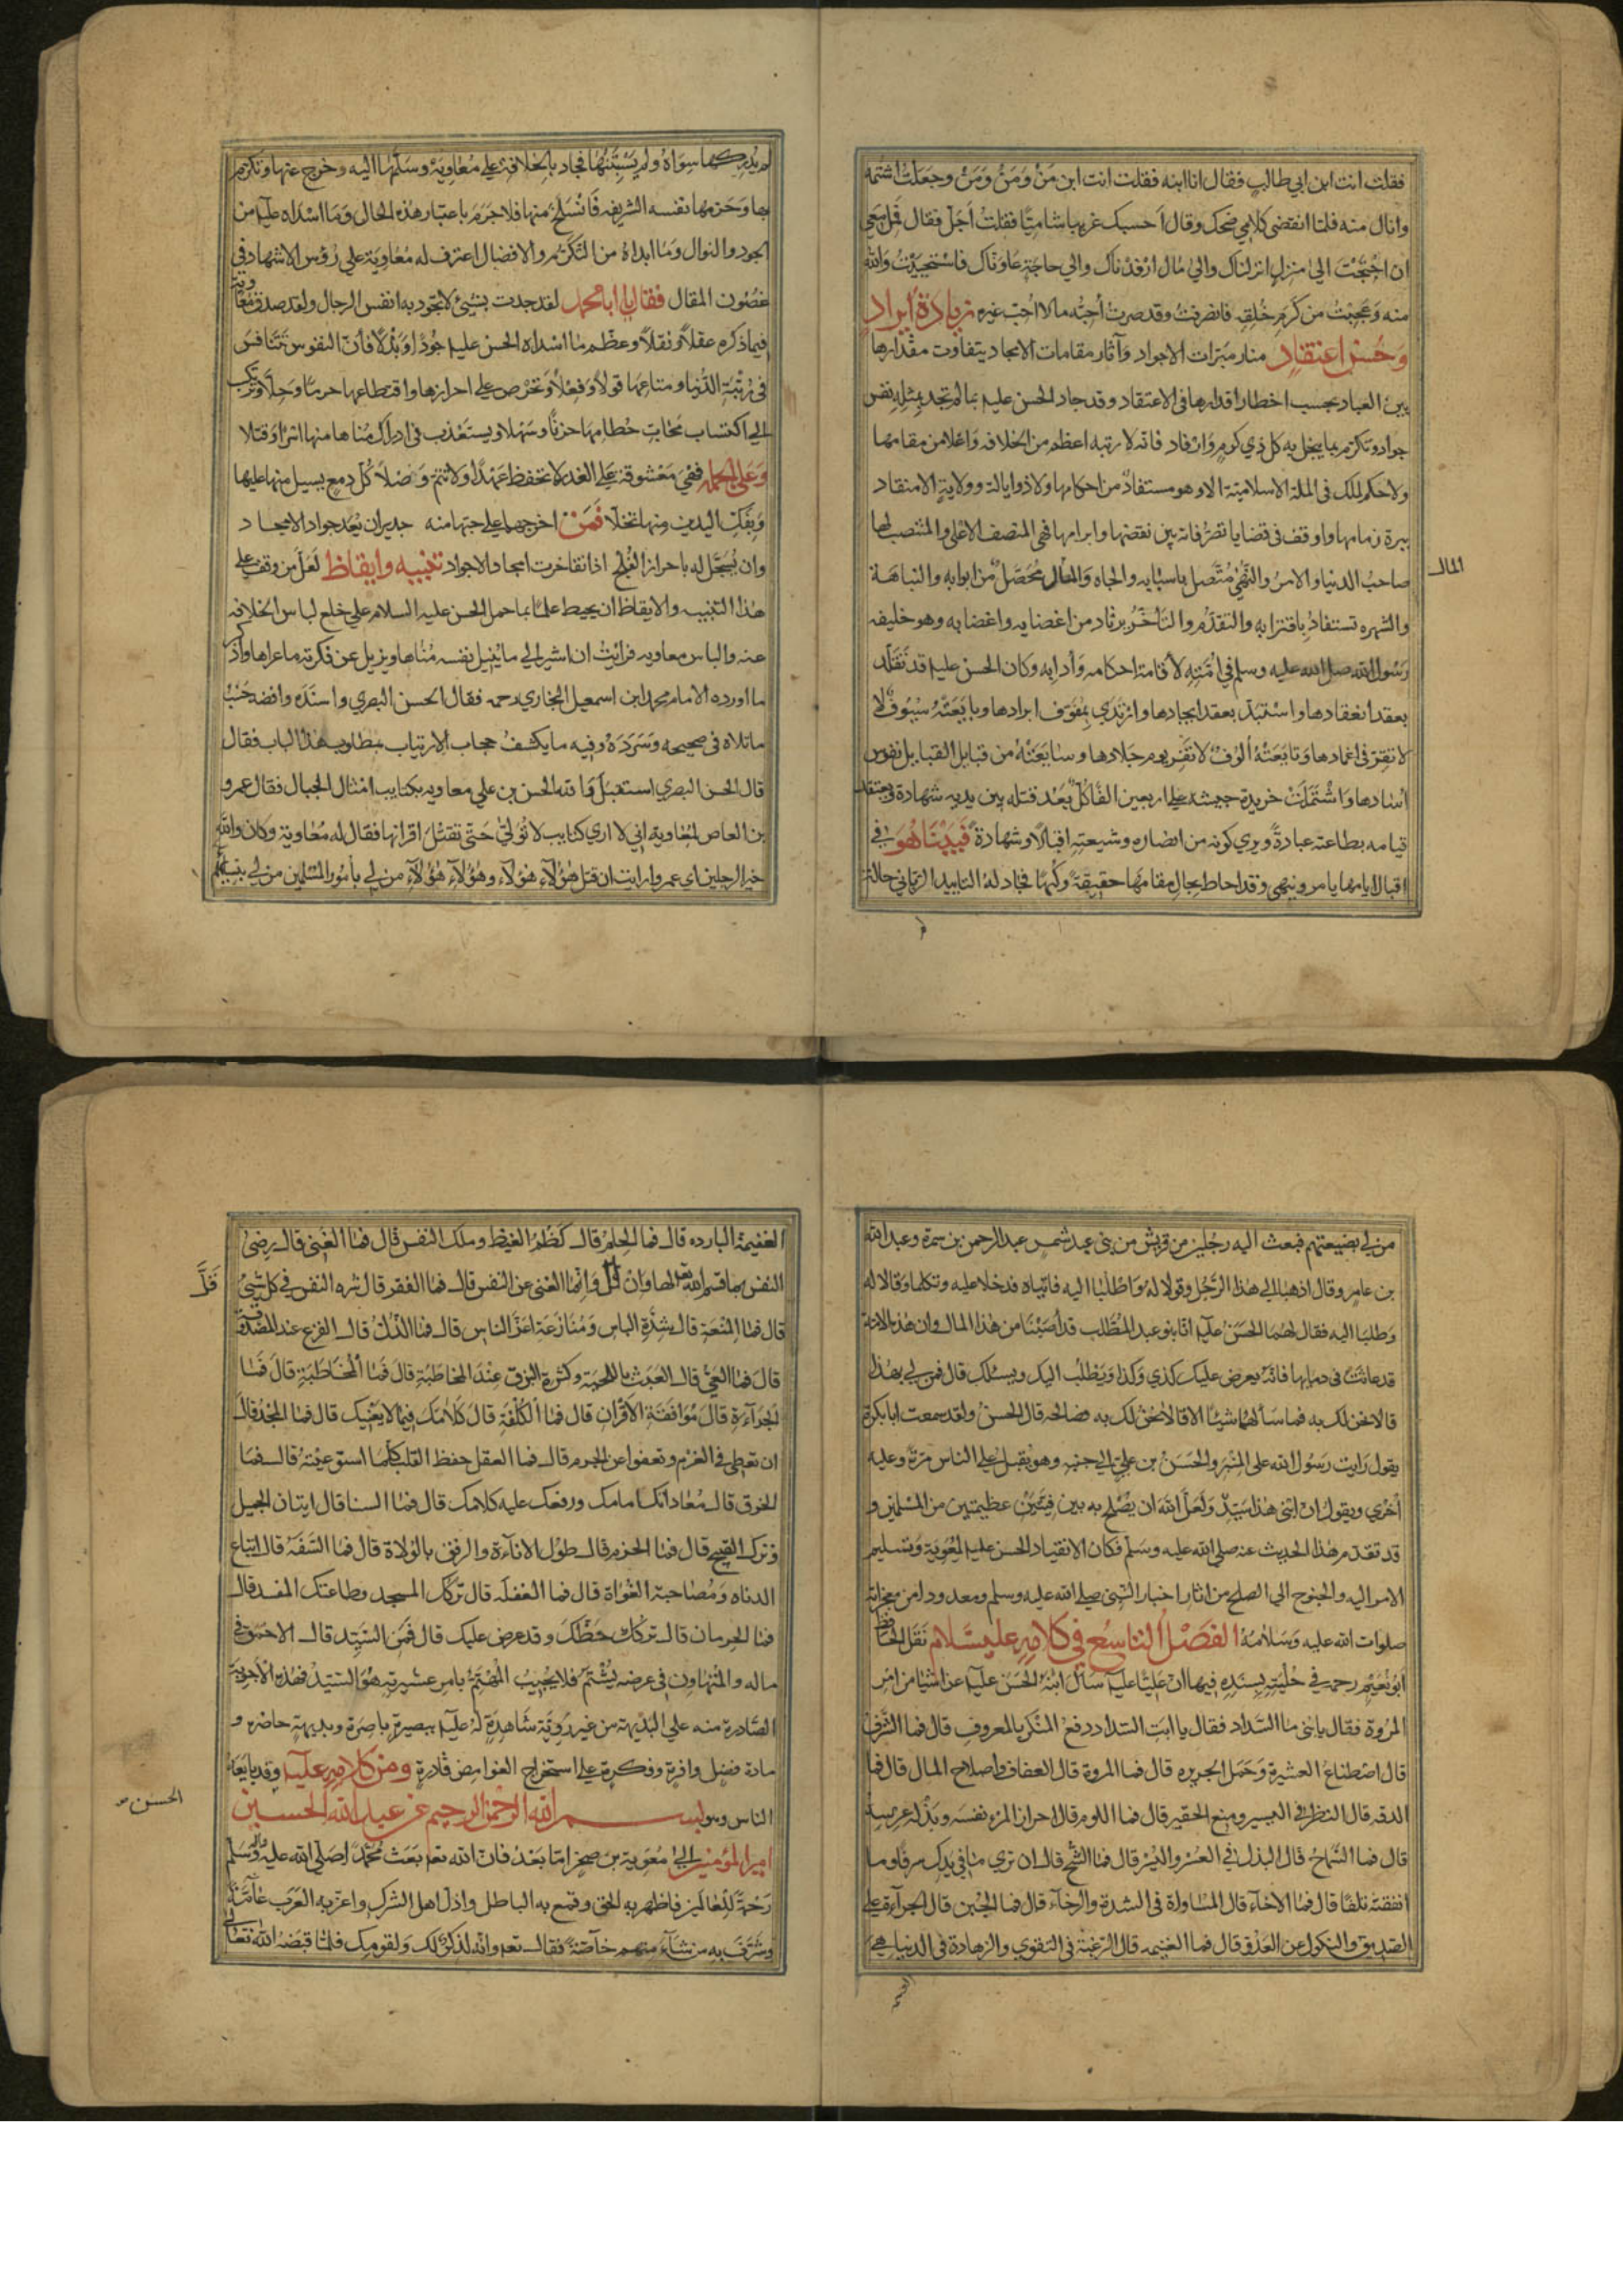 فقلت انت ابن ابي طالب فقال انا ابنه فقلت انت ابن مَنْ وَمَنْ وَمَنْ وجعلتُ اشتمه
وانال منه فلمّا انقضى كلامي ضحك وقال احسبك غريبا شاميّا فقلتُ اَجَلْ فقال مِل معي
ان احتجتَ الى منزل انزلناك والى مال ارفدناك والى حاجة عاوناك فاستحييتُ والله
منه وعجبتُ من كرم خُلقه فانصرفتُ وقد صرت اُحبّه ما لا اُحبّ غيره زيادة ايراد
وَحُسْن اعتقاد منار مبرّات الاجواد وآثار مقامات الامجاد يتفاوت مقدارها
بين العباد بحسب اخطار اقدارها فى الاعتقاد وقد جاد الحسن عليه بما لم تجد بمثله نفس
جواد وتكرم بما يبخل به كل ذي كرم وارفاد فانه لا رتبه اعظم من الخلافه واعلا من مقامها
ولا حكم لملك فى الملة الاسلاميّة الا وهو مستفاد من احكامها ولا ذو ايالة وولاية الا منقاد
ببرة زمامها واوقف فى قضايا تصرفاته بين نقضها وابرامها فهى المنصف الاعلى والمنتصب لها
صاحبُ الدنيا والامر والنهي متّصل باسبابه والجاه والمال محصّل من ابوابه والنباهة
المال
والشهره تستفاد باقترابه والتقدّم والتأخر يرتاد من اعضايه واغضابه وهو خليفه
رسول الله صلى الله عليه وسلم فى امّته لاقامة احكامه وآدابه وكان الحسن عليه قد تقلّد
بعقد انعقادها واستبدّ بعقد ايجادها وارتدي بمفوّف ابرادها وبايعته سيوف لا
لا تقرّ فى اغمادها وتابعته الوف لا تفر يوم جلادها وسايعته من قبايل القبايل نفوس
آسادها واشتملت خريدة جيشه على اربعين الفا كلّ يعد قتله بين يديه شهادة ويعتقد
قيامه بطاعته عبادةً ويري كونه من انصاره وشيعته اقبالا وشهادة فَبَيْنَا هُوَ فى
اقبال ايامها يامر وينهى وقد احاط بجال مقامها حقيقة وكنها فجاد له التاييد الربّاني حالة
لم يدركها سواه ولم يستبنها فجاد بالخلافة على معاوية وسلّمها اليه وخرج عنها وتكرّم
بها وحرمها نفسه الشريفه فانسلخ منها فلا جرم باعتبار هذه الحال وما اسداه عليه من
الجود والنوال وما ابداه من التكرّم والافضال اعترف له معاوية على رؤس الاشهاد فى
غضون المقال فقال يا ابا محمد لقد جدت بشيئ لا تجود به انفس الرجال ولقد صدق معاوية
فيما ذكره عقلا ونقلا وعظّم ما اسداه الحسن عليه جودًا وبذلا فانّ النفوس تتنافس
فى زينة الدنيا ومتاعها قولا وفعلا وتحرص على احرازها واقتطاعها حرمًا وحِلّا وتركب
الى اكتساب محاب حطامها حزنًا وسهلا ويستعذب فى ادراك مُناها منها اسرا وقتلا
وعلى الجمله فهي معشوقة على الغدر لا تحفظ عهدًا ولا تتم وصلا كل دمع يسيل منها عليها
وبفك اليدين منها تخلّا فمن اخرجها على حبّها منه جديران يُعد جواد الامجاد
وان يُسجّل له باحراز الفلج اذا تفاخرت امجاد الاجواد تنبيه وايقاظ لعل من وقف على
هذا التنبيه والايقاظ ان يحيط علمًا بما حمل الحسن عليه السلام على خلع لباس الخلافه
عنه والباس معاويه فرأيتُ ان اشير الى ما يُنيل نفسه مُناها ويزيل عن فكرته ما عراها واذكر
ما اورده الامام محمد ابن اسمعيل البخاري رحمه فقال الحسن البصري واسنده وافضه حسب
ما تلاه فى صحيحه وسرده وفيه ما يكشف حجاب الارتياب مطاوي هذا الباب فقال
قال الحسن البصري استقبل والله الحسن بن علي معاويه بكتايب امثال الجبال فقال عمرو
بن العاص لمعاوية اني لا اري كتايب لا تُولّي حتى تقتُلَ اقرانها فقال له معاوية وكان والله
خير الرجلين اي عمرو ارايت ان قتل هؤلآء هؤلآء وهؤلآء هؤلآء من لى باُمور المسلمين من لى بنسآئهم
من لى بضيعتهم فبعث اليه رجُلين من قريش من بنى عبد شمس عبد الرحمن بن سمرة وعبد الله
بن عامر وقال اذهبا الى هذا الرجُل وقولا له واطلبا اليه فاتياه فدخلا عليه وتكلما وقالا له
وطلبا اليه فقال لهما الحسن عليه انّا بنو عبد المطّلب قد اَصَبْنا من هذا المال وان هذه الامة
قد عاثت فى دمايها فانّه يعرض عليك كذي وكذا ويطلبُ اليك ويسئلك قال فمن لى بهذا
قالا نحن لك به فما سألهما شيئا الا قالا نحن لك به فصالحه قال الحسنُ ولقد سمعت ابا بكرة
يقول رايت رسول الله على المنبر والحسنُ بن علي الى جنبه وهو يُقبل على الناس مَرّةً وعليه
اُخرى ويقول اِن ابنى هذا سيّدٌ ولعلّ الله ان يُصلح به بين فئتين عظيمتين من المسلمين و
قد تقدّم هذا الحديث عنه صلى الله عليه وسلم فكان الانقياد الحسن عليه لمعوية وتسليم
الامر اليه والجنوح الى الصلح من اثار اخبار النّبي صلى الله عليه وسلم ومعدودا من معجزاته
صلوات الله عليه وسلامهُ الفصْل التاسع فى كلامِه عليه السّلام نقل الحافظ
ابو نُعيم رحمه فى حُليته بسنده فيها انّ عليّا عليه سأل ابنهُ الحسن عليه عن اشيا من امر
المروة فقال يا بنى ما السّداد فقال يا ابَتِ السّداد دفع المنكر بالمعروف قال فما الشّرف
قال اصطناعُ العشيرة وحمل الجريره قال فما المروة قال العفاف واصلاح المال قال فما
الدقه قال النظر فى اليسير ومنع الحقير قال فما اللوم قال احراز المرء نفسه وبذله عرسه
قال فما السّماح قال البذل فى العُسْر واليُسْر قال فما الشُّح قال ان تري ما في يدك سرفا وما
انفقته تلفا قال فما الاخآء قال المساواة فى الشدة والرخآء قال فما الجُبن قال الجرأة على
الصديق والنكول عن العدوّ قال فما الغنيمه قال الرّغبة فى التقوي والزهادة فى الدنيا هى
الغنيمة البارده قال فما الحِلم قال كَظْمُ الغيظ وملك النفس قال فما الغنى قال رضى
النفس بما قسم الله لها وان قلّ وانّما الغنى غنى النفس قال فما الفقر قال شره النفس فى كل شئ
قَلَّ
قال فما المَنْعة قال شدّة الباس ومنازعة اعزّ الناس قال فما الذّل قال الفزع عند المصدوقة
قال فما العيّ قال العبث باللحية وكثرة البزق عند المخاطبة قال فما
الجرآءة قال موافقة الاقران قال فما الكُلْفة قال كلامك فيما لا يعنيك قال فما المَجدُ قال
ان تعطى فى الغرم وتعفوا عن الجرم قال فما العقل حفظ القلب كلّما استوعيته قال فما
الخرق قال معاداتك امامك ورفعك عليه كلامك قال فما السنا قال اتيان الجميل
وترك القبيح قال فما الحزم قال طول الاناءة والرفق بالولاة قال فما السّفهُ قال اتباع
الدناه ومصاحبة الغُواة قال فما الغفله قال تركك المسجد وطاعتك المفسد قال
فما الحرمان قال تركك حظّك وقد عرض عليك قال فمن السّيد قال الاحمق فى
ماله والمتهاون فى عرضه يُشتم فلا يُجيب المهتمّ بامر عشيرته هو السّيدُ فهذه الاجوبة
الصّادرة منه على البديهة من غير رويّة شاهدة لهُ عليه ببصيرة باصرة وبديهة حاضره و
مادة فضل وافرة وفكرة على استخراج الغوامض قادرة ومن كلامه عليه وقد بايعهُ
الناس وهو بسم الله الرحمن الرحيم من عبد الله الحسين
الحسن
امير المؤمنين الى معوية بن صخر امّا بعد فانّ الله تعم بعث محمّدا صلّى الله عليه واله وسلّم
رحمةً للعالمين فاظهر به الحق وقمع به الباطل واذلّ اهل الشرك واعزّ به العرب عآمّة
وشرّف به من شآء منهم خآصّةً فقال تعم وانّه لذكرٌ لك ولقومك فلمّا قبضهُ الله تعالى